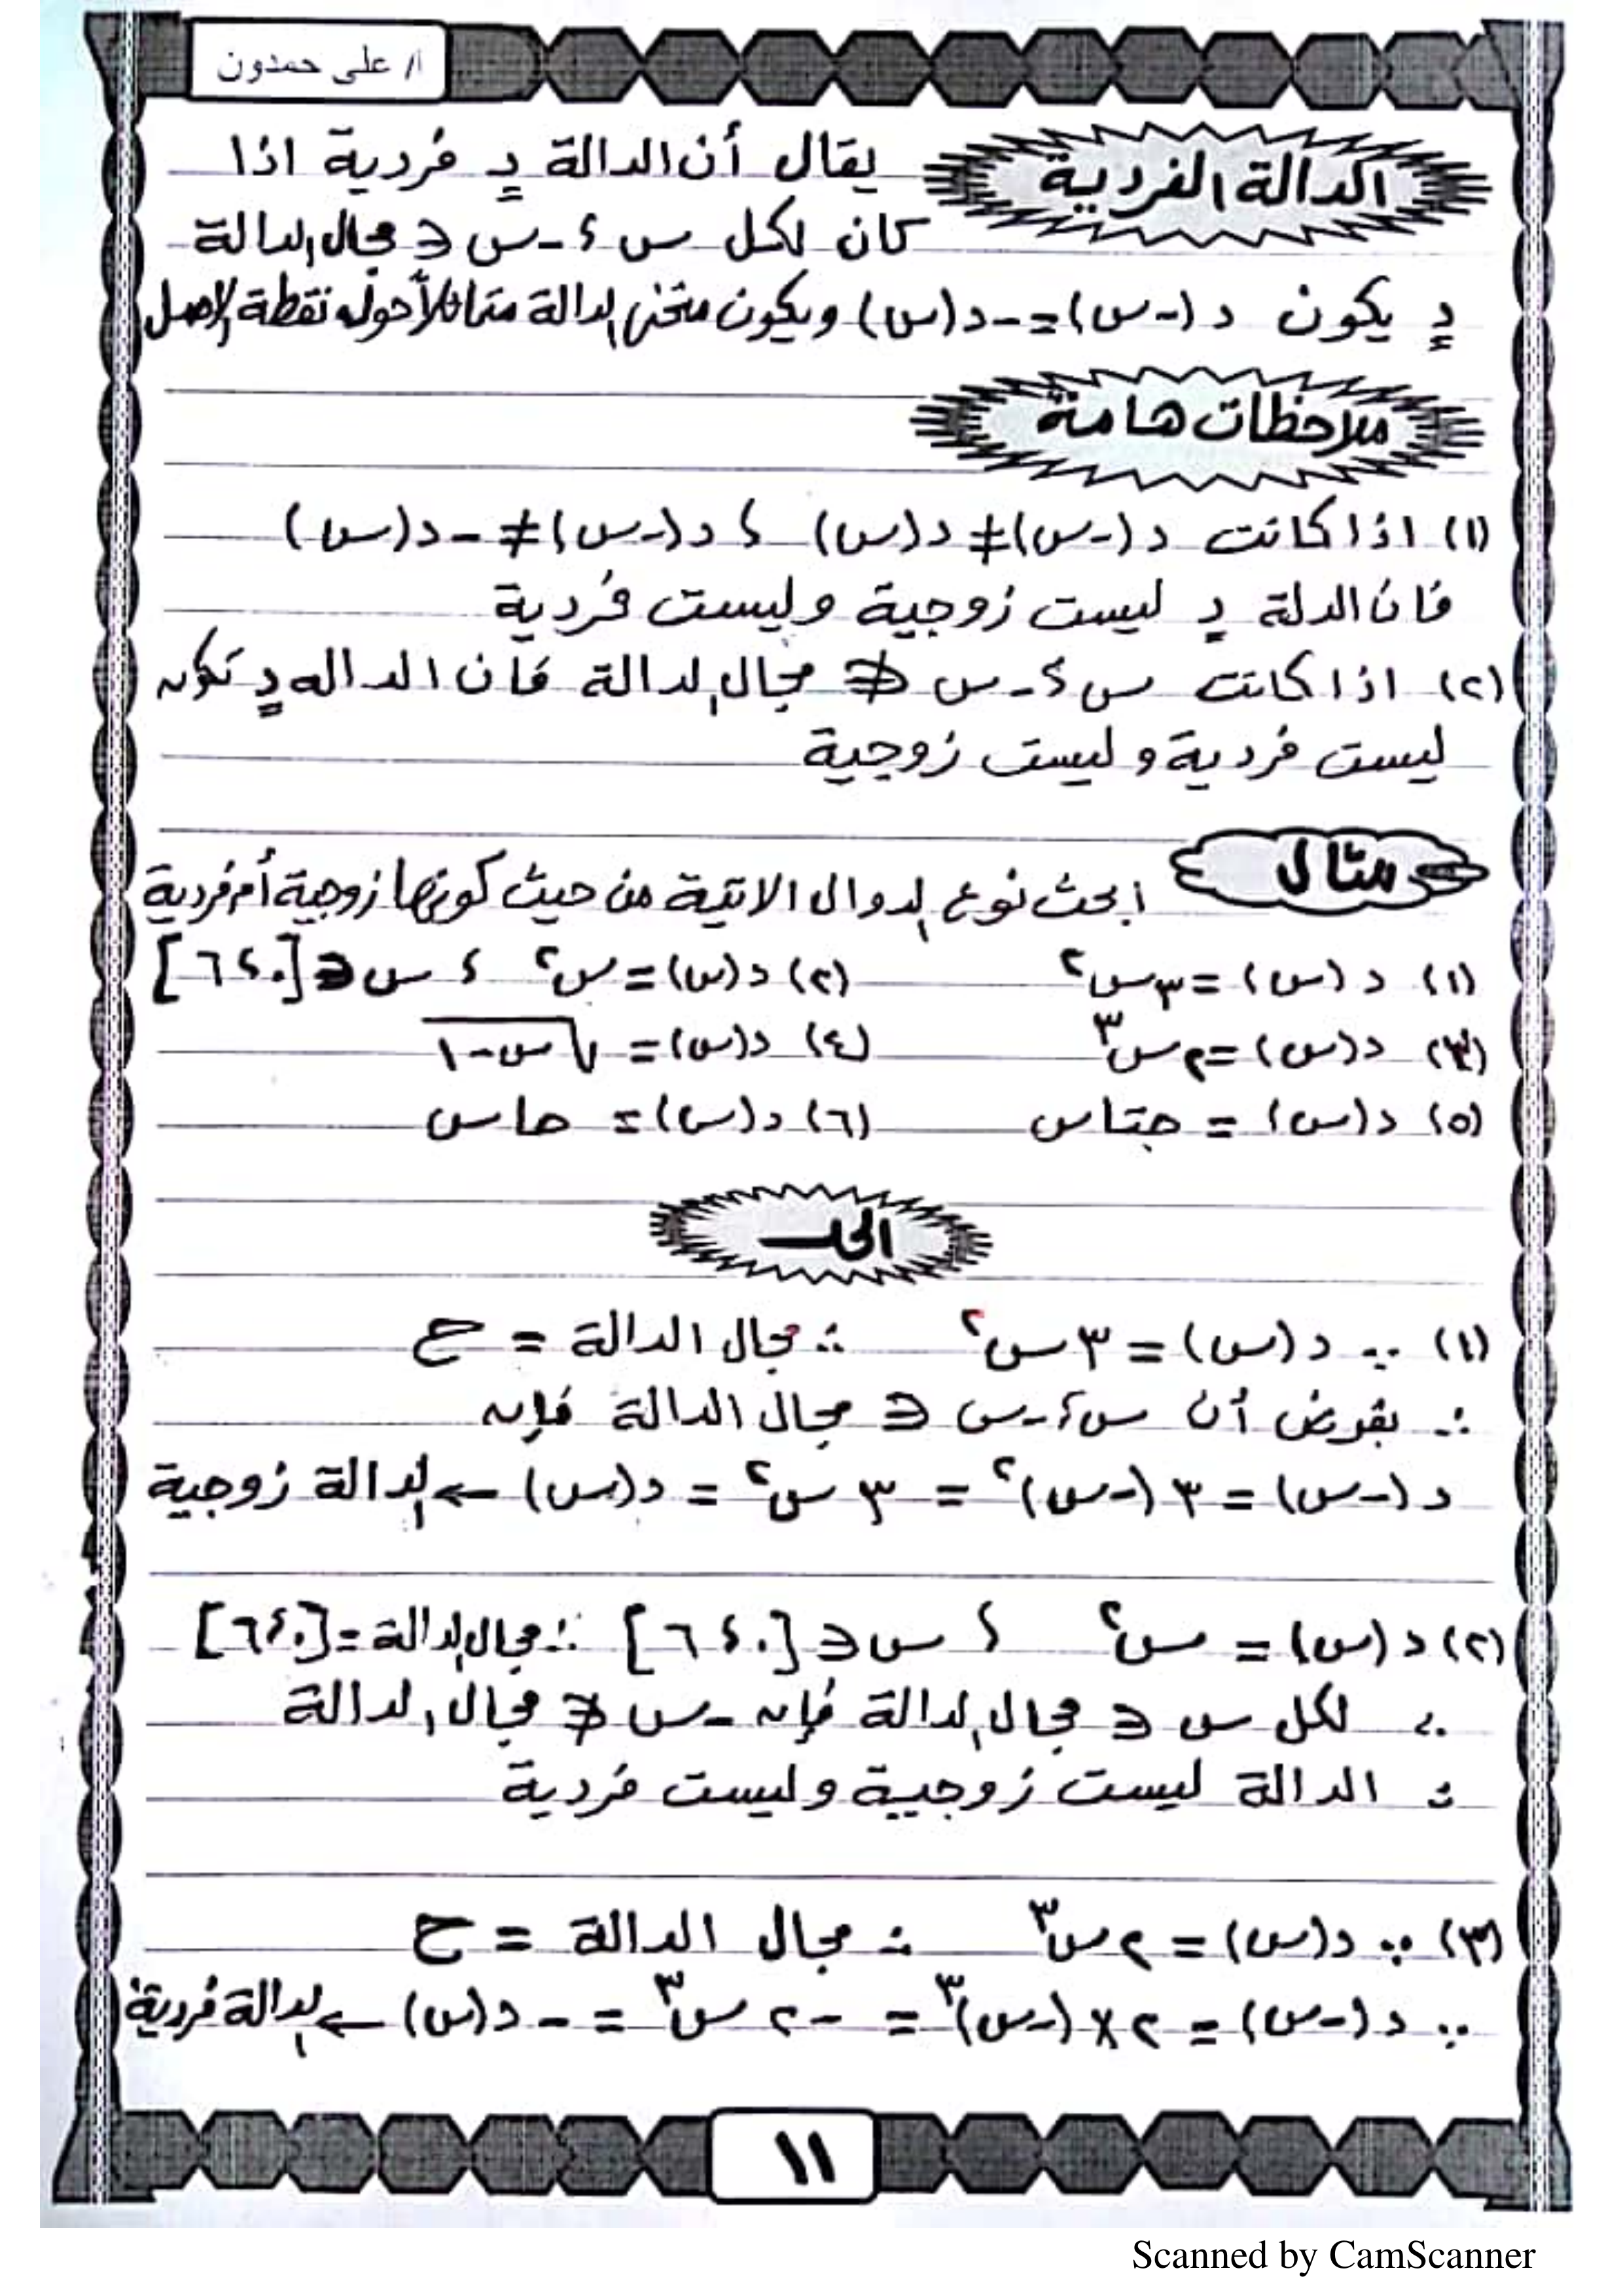 أ/ على حمدون
الدالة الفردية يقال أن الدالة د فردية اذا
كان لكل س ، -س ∈ مجال الدالة
د يكون د (-س) = -د(س) ويكون منحنى الدالة متماثلاً حول نقطة الاصل
ملاحظات هامة
(١) اذا كانت د (-س) ≠ د(س) ، د(-س) ≠ -د(س)
فان الدلة د ليست زوجية وليست فردية
(٢) اذا كانت س ، -س ∉ مجال الدالة فان الداله د تكون
ليست فردية وليست زوجية
مثال ابحث نوع الدوال الاتية من حيث كونها زوجية أم فردية
(١) د (س) = ٣س٢ (٢) د(س) = س٢ ، س ∈ [٠ ، ٦]
(٣) د(س) = ٢س٣ (٤) د(س) = √س-١
(٥) د(س) = جتاس (٦) د(س) = حاس
الحل
(١) ∵ د (س) = ٣س٢ ∴ مجال الدالة = ح
∴ بفرض أن س ، -س ∈ مجال الدالة فإن
د (-س) = ٣ (-س)٢ = ٣ س٢ = د(س) ← الدالة زوجية
(٢) د (س) = س٢ ، س ∈ [٠ ، ٦] ∴ مجال الدالة = [٠ ، ٦]
∵ لكل س ∈ مجال الدالة فإن -س ∉ مجال الدالة
∴ الدالة ليست زوجية وليست فردية
(٣) ∵ د(س) = ٢س٣ ∴ مجال الدالة = ح
∵ د (-س) = ٢ × (-س)٣ = -٢ س٣ = -د(س) ← الدالة فردية
١١
Scanned by CamScanner